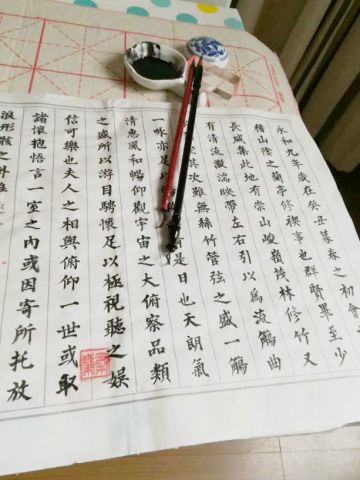 永和九年歲在癸丑暮春之初會
稽山陰之蘭亭修禊事也群賢畢至少
長咸集此地有崇山峻嶺茂林修竹又
有清流激湍映帶左右引以為流觴曲
其次雖無絲竹管弦之盛一觴
一咏亦足以是日也天朗氣
清惠風和暢仰觀宇宙之大俯察品類
之盛所以游目騁懷足以極視聽之娛
信可樂也夫人之相與俯仰一世或取
諸懷抱悟言一室之內或因寄所托放
浪形骸之外雖